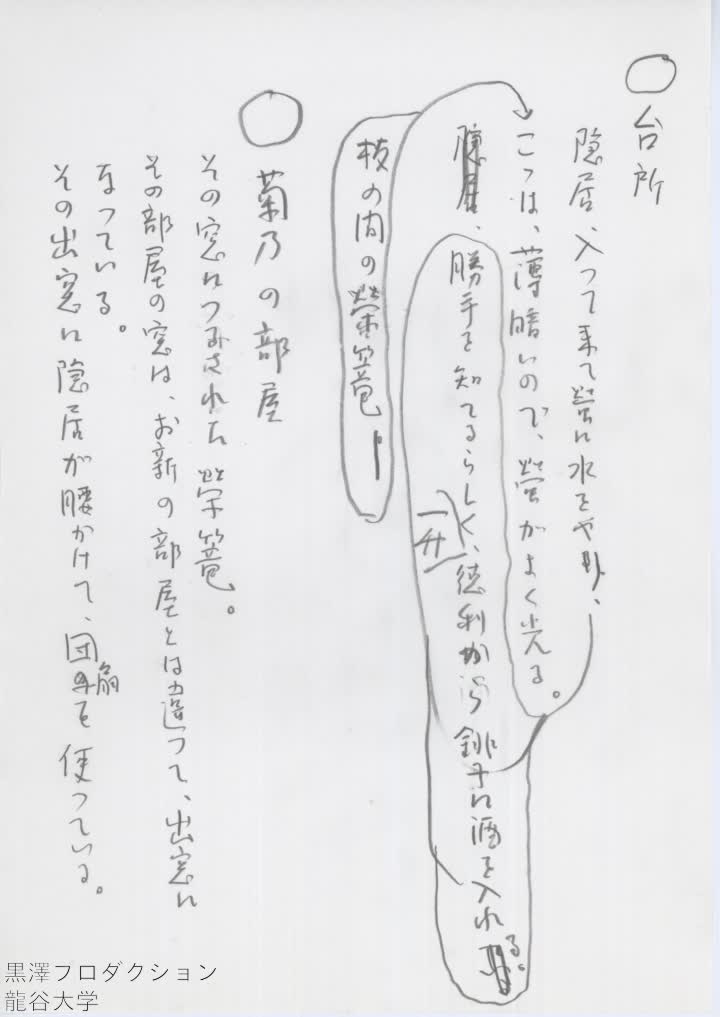 ○台所
隠居、入って来て螢に水をやり、
こゝは、薄暗いので、螢がよく光る。
隠居、勝手を知てるらしく、一升徳利から銚子に酒を入れる。
枝の内の螢篭
○菊乃の部屋
その窓につるされた螢篭。
その部屋の窓は、お新の部屋とは違って、出窓に
なっている。
その出窓に隠居が腰かけて、団扇を使っている。
黒澤プロダクション
龍谷大学